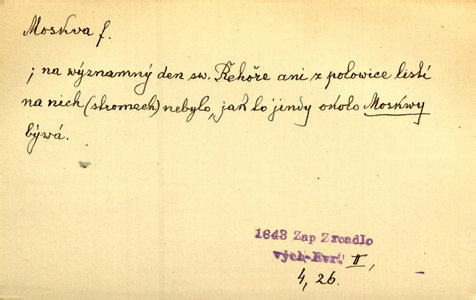 Moskva f.
; na významný den sw. Řehoře ani z polowice listí
na nich (stromech) nebylo, jak to jindy okolo Moskwy
býwá.
1843 Zap Zrcadlo
vých-Evr. II,
4, 26.